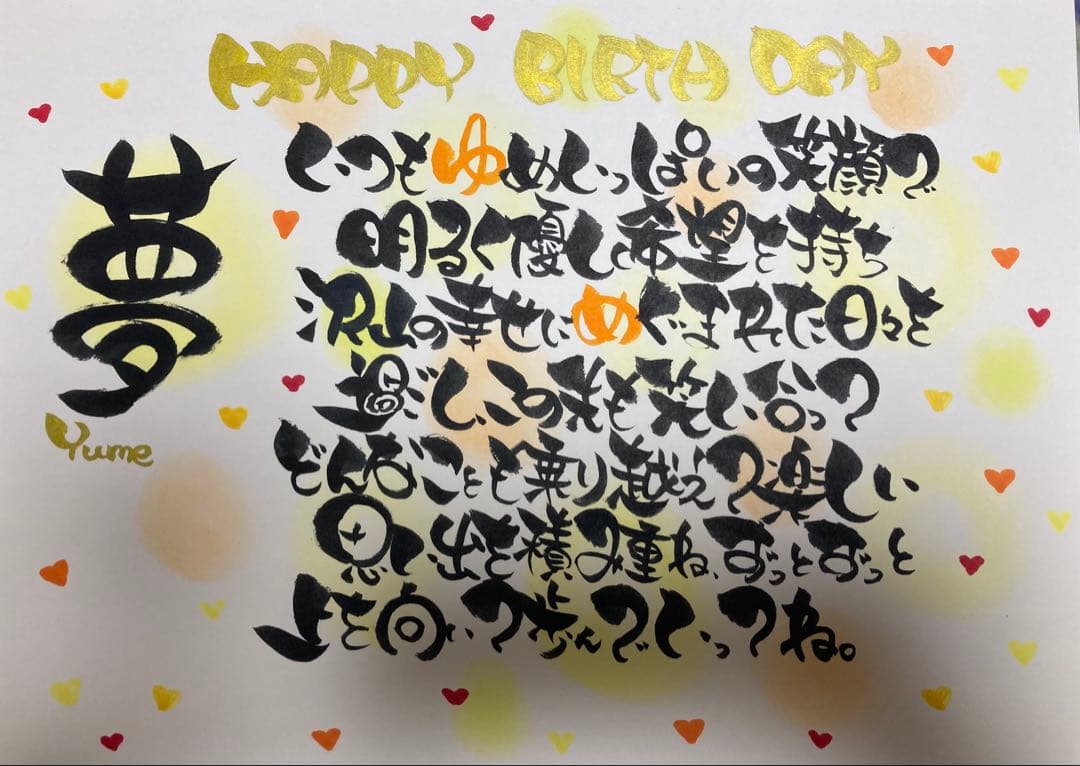 HAPPY BIRTH DAY
夢
Yume
いつもゆめいっぱいの笑顔で
明るく優しく希望を持ち
沢山の幸せにめぐまれた日々を
過ごし、この先も笑い合って
どんなことも乗り越えて楽しい
思い出を積み重ね、ずっとずっと
上を向いて歩んでいってね。